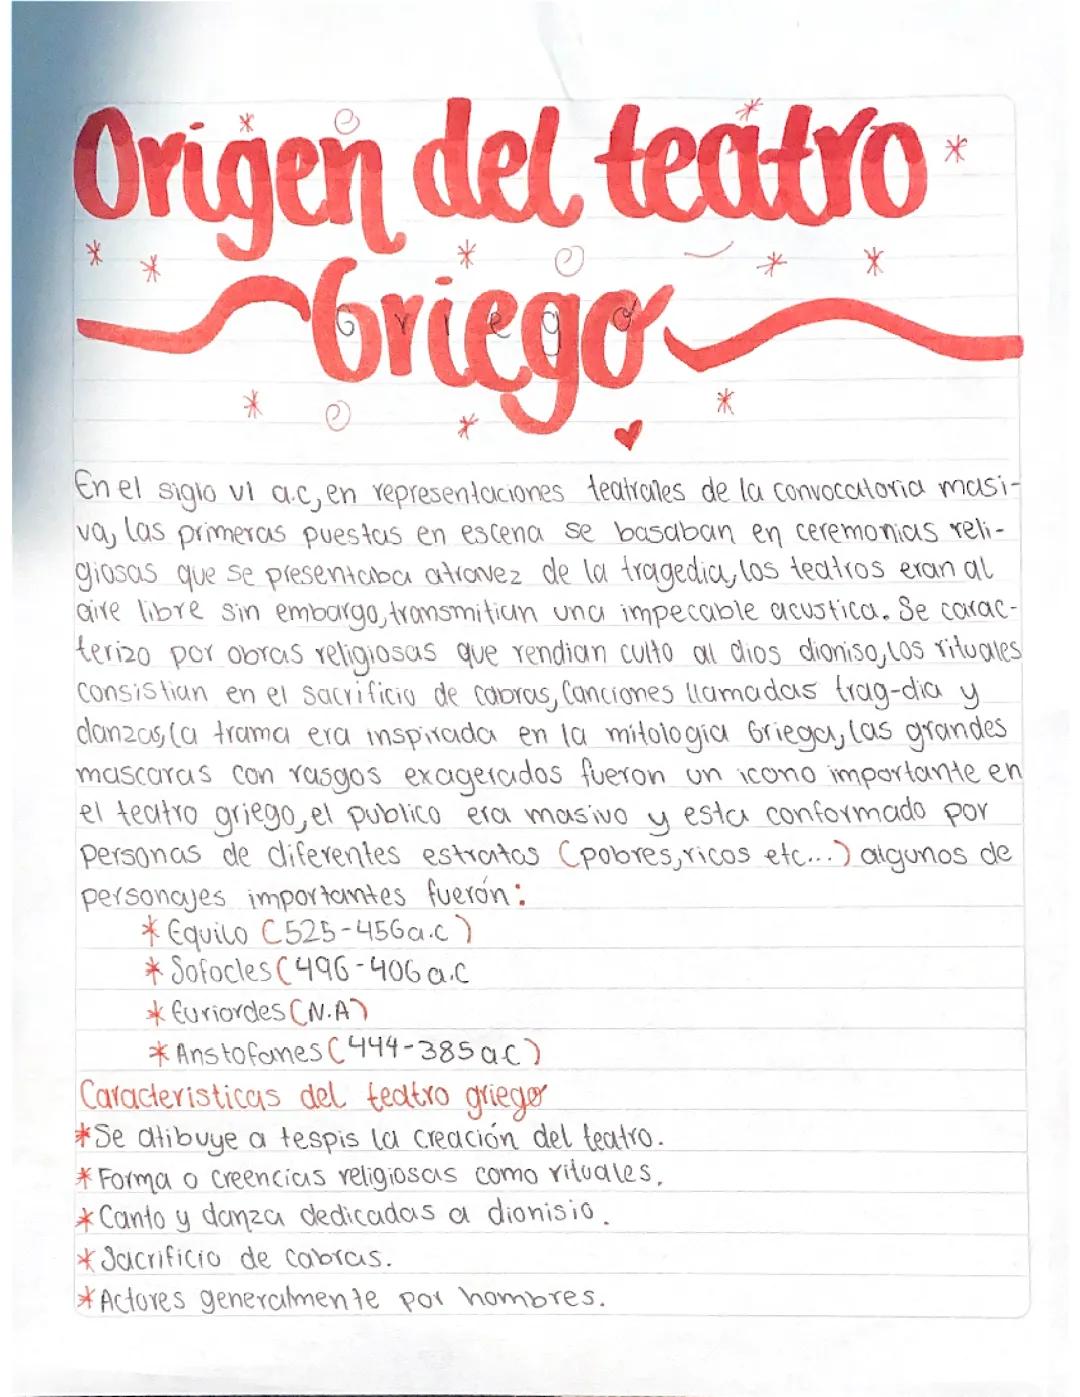 Origen del teatro
Griego
En el siglo VI a.c, en representaciones teatrales de la convocatoria masi-
va, las primeras puestas en escena se basaban en ceremonias reli-
giosas que se presentaba atravez de la tragedia, los teatros eran al
aire libre sin embargo, transmitian una impecable acustica. Se carac-
terizo por obras religiosas que rendian culto al dios dioniso, los rituales
consistian en el sacrificio de cabras, Canciones llamadas trag-dia y
danzas, la trama era inspirada en la mitologia Griega, las grandes
mascaras con rasgos exagerados fueron un icono importante en
el teatro griego, el publico era masivo y esta conformado por
personas de diferentes estratos (pobres, ricos etc...) algunos de
personajes importantes fuerón:
* Equilo (525-456a.c)
* Sofocles (496-406 a.c
* Euriordes (N.A)
* Anstofanes (444-385 a.c)
Caracteristicas del teatro griego
* Se atibuye a tespis la creación del teatro.
* Forma o creencias religiosas como rituales.
* Canto y danza dedicadas a dionisio.
* Sacrificio de cabras.
* Actores generalmente por hombres.